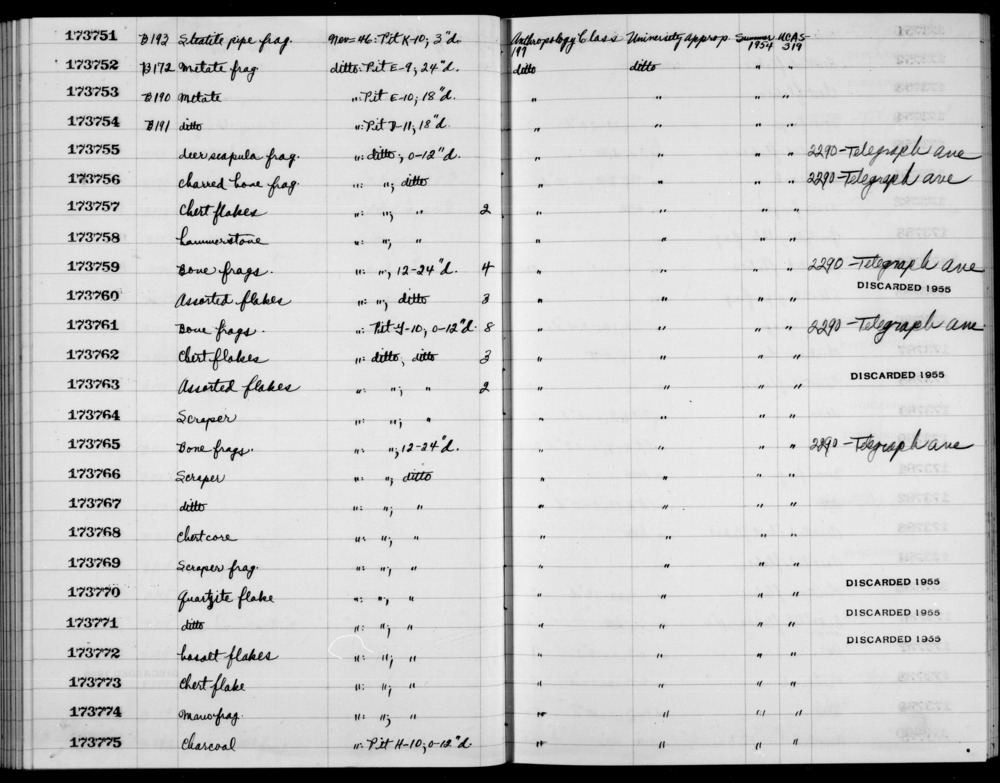 173751 B193 Steatite pipe frag. Nev-46: Pit K-10; 3"d. Anthropology Class 197 University Approp. Summer 1954 UCAS-319
173752 B172 Metate frag. ditto: Pit E-9; 24"d. ditto ditto " "
173753 B190 Metate ": Pit E-10; 18"d. " " " "
173754 B191 ditto ": Pit J-11; 18"d. " " " "
173755 deer scapula frag. ": ditto; 0-12"d. " " " " 2290-Telegraph ave
173756 Charred bone frag. ": "; ditto " " " " 2290-Telegraph ave
173757 Chert flakes ": "; " 2 " " " "
173758 hammerstone ": "; " " " " "
173759 Bone frags. ": "; 12-24"d. 4 " " " " 2290-Telegraph ave
173760 Assorted flakes ": "; ditto 3 " " " " DISCARDED 1955
173761 Bone frags. ": Pit Y-10; 0-12"d. 8 " " " " 2290-Telegraph ave.
173762 Chert flakes ": ditto; ditto 3 " " " "
173763 Assorted flakes ": "; " 2 " " " " DISCARDED 1955
173764 Scraper ": "; " " " " "
173765 Bone frags. ": "; 12-24"d. " " " " 2290-Telegraph ave
173766 Scraper ": "; ditto " " " "
173767 ditto ": "; " " " " "
173768 Chert core ": "; " " " " "
173769 Scraper frag. ": "; " " " " "
173770 Quartzite flake ": "; " " " " " DISCARDED 1955
173771 ditto ": "; " " " " " DISCARDED 1955
173772 basalt flakes ": "; " " " " " DISCARDED 1955
173773 Chert flake ": "; " " " " "
173774 Mano frag. ": "; " " " " "
173775 Charcoal ": Pit H-10; 0-12"d. " " " "